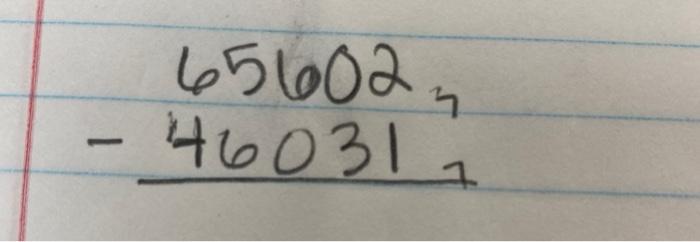 65602₇
- 46031₇